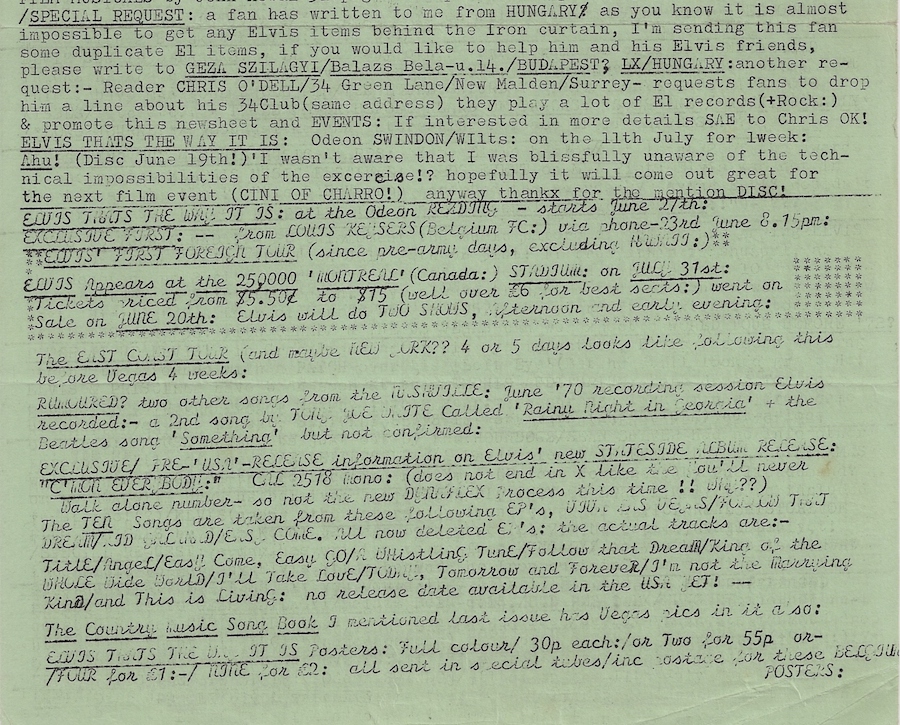 /SPECIAL REQUEST: a fan has written to me from HUNGARY/ as you know it is almost
impossible to get any Elvis items behind the Iron curtain, I'm sending this fan
some duplicate El items, if you would like to help him and his Elvis friends,
please write to GEZA SZILAGYI/Balazs Bela-u.14./BUDAPEST, LX/HUNGARY:another re-
quest:- Reader CHRIS O'DELL/34 Green Lane/New Malden/Surrey- requests fans to drop
him a line about his 34Club(same address) they play a lot of El records(+Rock:)
& promote this newsheet and EVENTS: If interested in more details SAE to Chris OK!
ELVIS THATS THE WAY IT IS:  Odeon SWINDON/WIlts: on the 11th July for 1week:
Ahu! (Disc June 19th!)'I wasn't aware that I was blissfully unaware of the tech-
nical impossibilities of the excercise!? hopefully it will come out great for
the next film event (CINI OF CHARRO!)  anyway thankx for the mention DISC!
ELVIS THATS THE WAY IT IS: at the Odeon READING - starts June 27th:
EXCLUSIVE FIRST: -- from LOUIS (Belgium FC:) via phone-23rd June 8.15pm:
**ELVIS' FIRST FOREIGN TOUR (since pre-army days, excluding HAWAII:)**
ELVIS Appears at the 250000 'MONTREAL'(Canada:) STADIUM: on JULY 31st:
*Tickets priced from $5.50¢ to $15 (well over £6 for best seats:) went on
*Sale on JUNE 20th:  Elvis will do TWO SHOWS, afternoon and early evening:
The EAST COAST TOUR (and maybe NEW YORK?? 4 or 5 days looks like following this
before Vegas 4 weeks:
RUMOURED? two other songs from the NASHVILLE: June '70 recording session Elvis
recorded:- a 2nd song by TONY JOE WHITE Called 'Rainy Night in Georgia' + the
Beatles song 'Something'  but not confirmed:
EXCLUSIVE/ PRE-'USA'-RELEASE information on Elvis' new STATESIDE ALBUM RELEASE:
"C'MON EVERYBODY:"  CAL 2518 mono: (does not end in X like the You'll never
Walk alone number- so not the new DYNAFLEX Process this time !! Why??)
The TEN Songs are taken from these following EP's, VIVA LAS VEGAS/FOLLOW THAT
DREAM/KID GALAHAD/EASY COME. All now deleted EP's: the actual tracks are:-
Title/Angel/Easy Come, Easy GO/A Whistling Tune/Follow that Dream/King of the
WHOLE Wide World/I'll Take Love/TODAY, Tomorrow and Forever/I'm not the Marrying
Kind/and This is Living:  no release date available in the USA YET! --
The Country Music Song Book I mentioned last issue has Vegas pics in it also:
ELVIS THATS THE WAY IT IS Posters: Full colour/ 30p each:/or Two for 55p  or-
/FOUR for £1:-/ NINE for £2:  all sent in special tubes/inc postage for these BELGIUM
POSTERS: